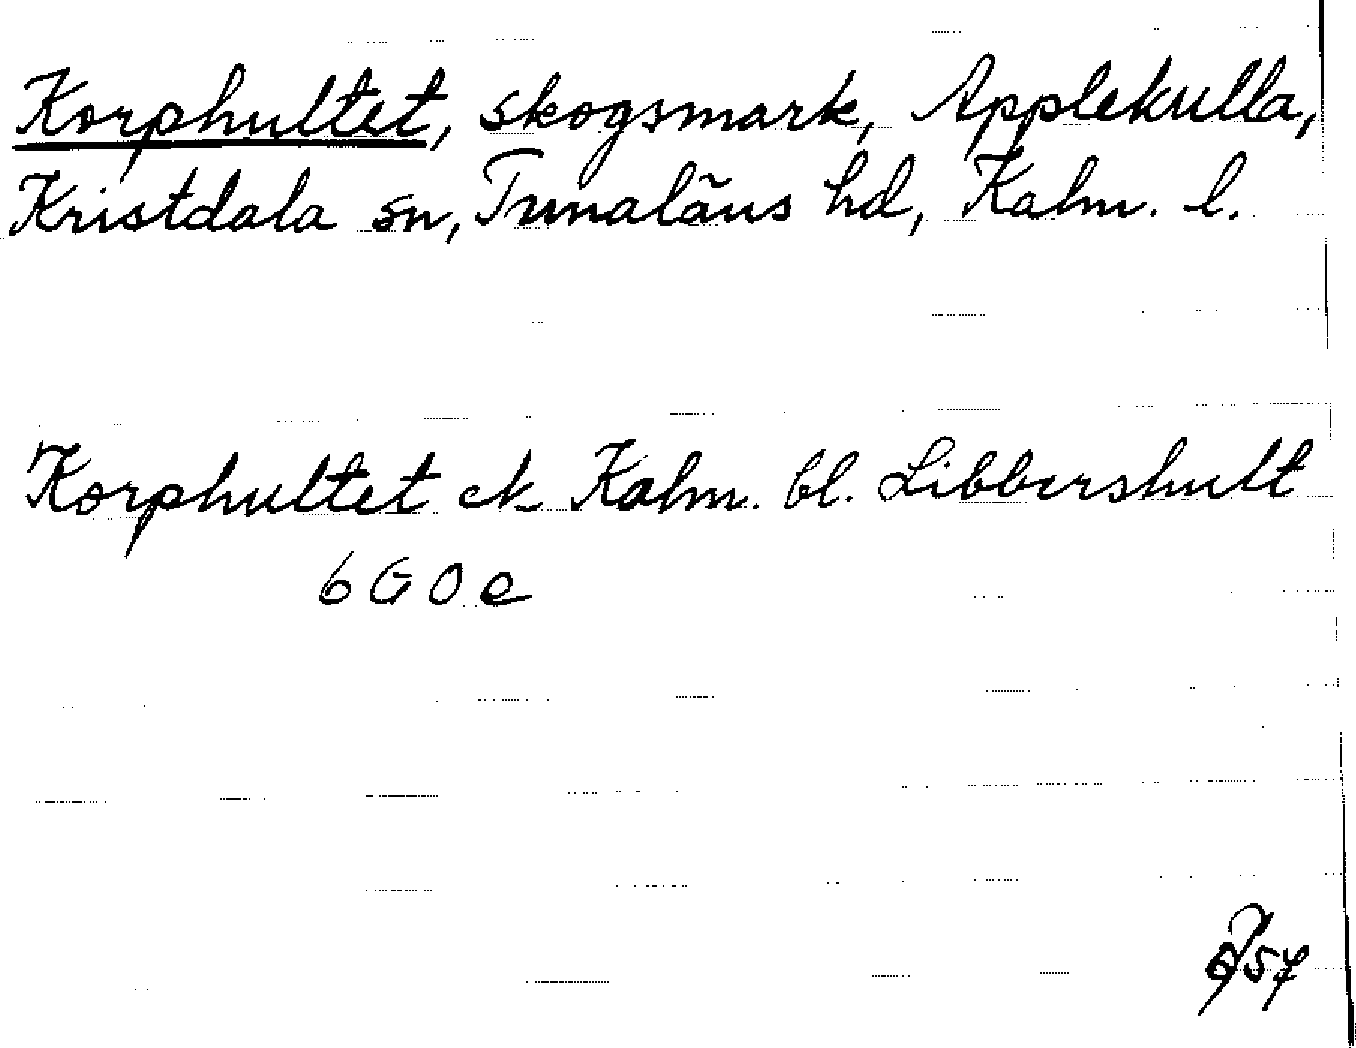 Korphultet, skogsmark, Applekulla,
Kristdala sn, Tunaläns hd, Kalm. l.
Korphultet ek Kalm. bl. Libbershult
6 G 0 e